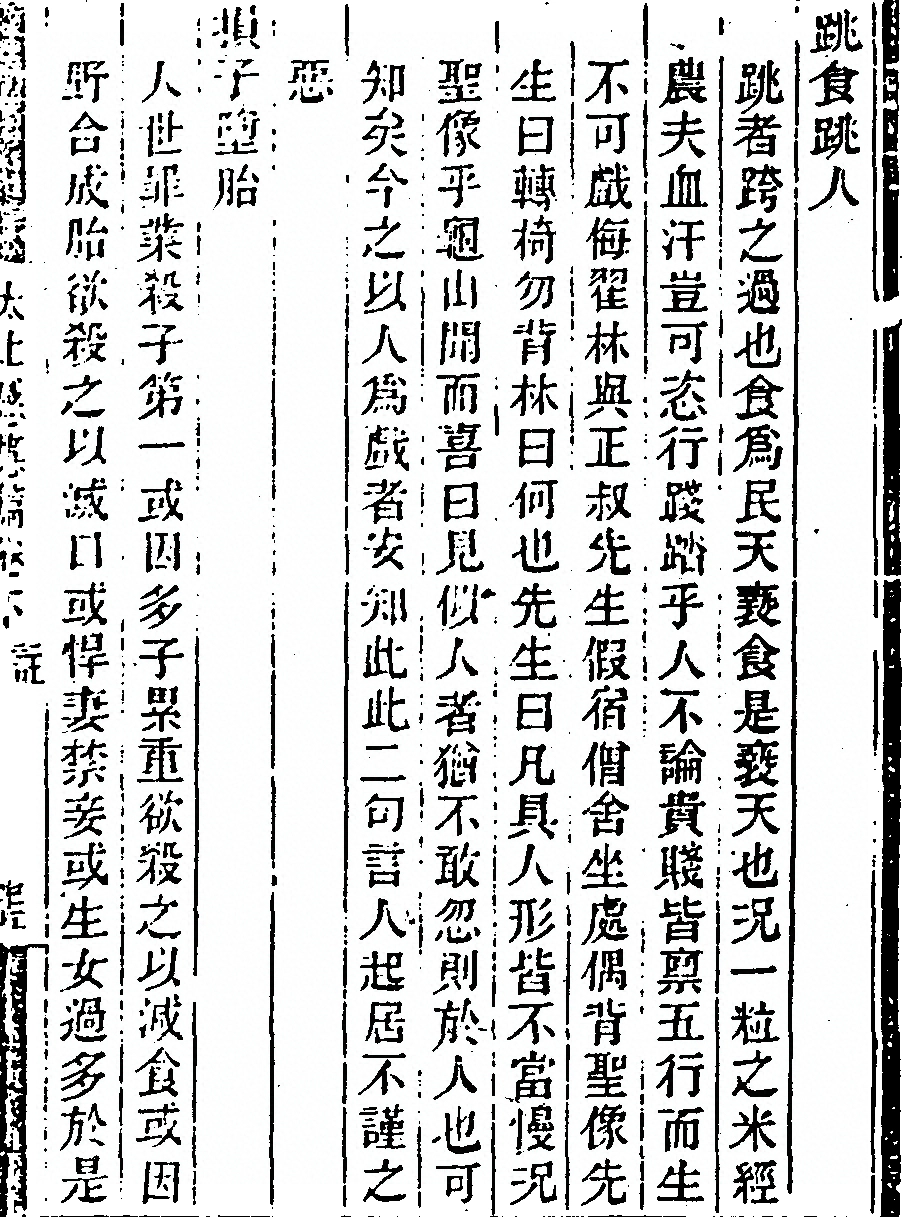 跳食跳人
跳者跨之過也食爲民天䙝食是䙝天也況一粒之米經
農夫血汗豈可恣行踐踏乎人不論貴賤皆禀五行而生
不可戲侮翟林與正叔先生假宿僧舍坐處偶背聖像先
生曰轉椅勿背林曰何也先生曰凡具人形皆不當慢況
聖像乎龜山聞而喜曰見似人者猶不敢忽則於人也可
知矣今之以人爲戲者安知此此二句言人起居不謹之
惡
損子墮胎
人世罪業殺子第一或因多子累重欲殺之以減食或因
野合成胎欲殺之以滅口或悍妻禁妾或生女過多於是
太上感應篇卷下 註